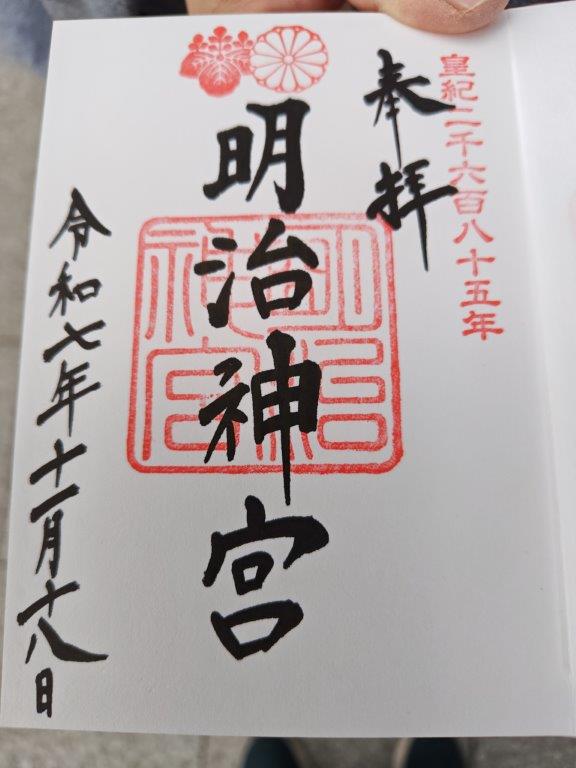 皇紀二千六百八十五年
奉拝
明治神宮
明治神宮
令和七年十一月十八日